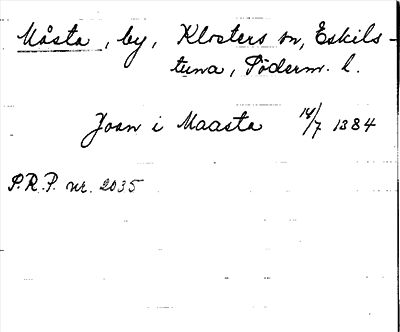 Måsta, by, Klosters sn, Eskils-
tuna, Söderm. l.
Joan i Maasta 14/7 1384
S.R.P. nr. 2035